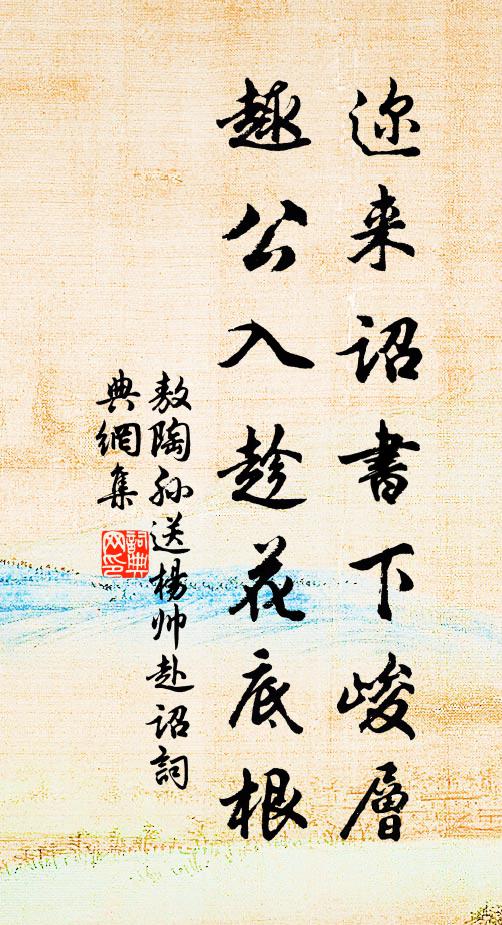 迩来诏書下峻層
趣公入趁花底根
敖陶孙送楊帅赴诏詞
典網集
詞典网印